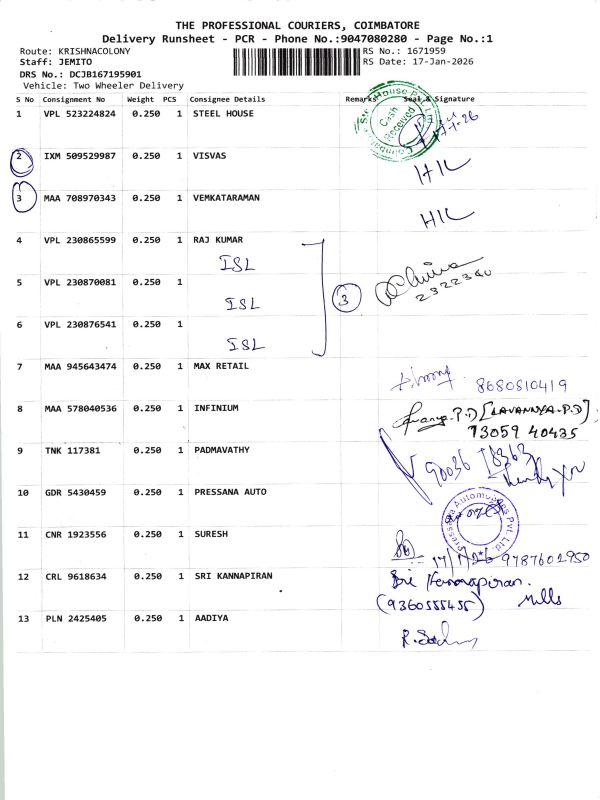 THE PROFESSIONAL COURIERS, COIMBATORE
Delivery Runsheet - PCR - Phone No.:9047080280 - Page No.:1
Route: KRISHNACOLONY RS No.: 1671959
Staff: JEMITO RS Date: 17-Jan-2026
DRS No.: DCJB167195901
Vehicle: Two Wheeler Delivery
S No Consignment No Weight PCS Consignee Details Remarks Seal & Signature
1 VPL 523224824 0.250 1 STEEL HOUSE
Cash Received
2 IXM 509529987 0.250 1 VISVAS
HIL
3 MAA 708970343 0.250 1 VEMKATARAMAN
HIL
4 VPL 230865599 0.250 1 RAJ KUMAR
ISL
5 VPL 230870081 0.250 1
ISL 3 2322340
6 VPL 230876541 0.250 1
ISL
7 MAA 945643474 0.250 1 MAX RETAIL
8680810419
8 MAA 578040536 0.250 1 INFINIUM
[LAVANNYA.P.D]
73059 40435
9 TNK 117381 0.250 1 PADMAVATHY
90036 18363
10 GDR 5430459 0.250 1 PRESSANA AUTO
Pressana Automobiles Pvt. Ltd
11 CNR 1923556 0.250 1 SURESH
17/1/26 9787601950
12 CRL 9618634 0.250 1 SRI KANNAPIRAN
Sri Kannapiran.
(9360555455) Mills
13 PLN 2425405 0.250 1 AADIYA